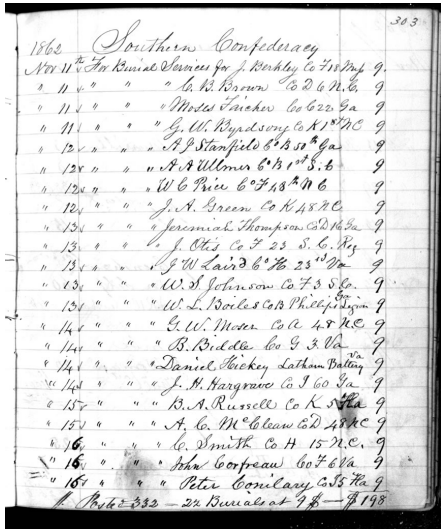 303
1862 Southern Confederacy
Nov 11th For Burial Services for J. Berkley Co F 18 Miss 9.
" 11 " " " C. B. Brown Co D 6 N.C. 9
" 11 " " " Moses Co C 22 Ga 9
" 11 " " " G. W. Byrdsong Co K 1st NC 9
" 12 " " " A J Stanfield Co B 50th Ga 9
" 12 " " " A A Ulmer Co B 1st S.C 9
" 12 " " " W C Price Co F 48th N C 9
" 12 " " " J. A. Green Co K 48 NC 9
" 13 " " " Jeremiah Thompson Co D 16 Ga 9
" 13 " " " J. Otis Co F 23 S. C. Reg 9
" 13 " " " J W Laird Co H. 23rd Va 9
" 13 " " " W. S. Johnson Co F 3 S Co. 9
" 13 " " " W. L. Boiles Co B Phillips Ga Legion 9
" 14 " " " G. W. Moser Co A 48 NC 9
" 14 " " " B. Biddle Co G 3. Va 9
" 14 " " " Daniel Hickey Latham Battery Va 9
" 14 " " " J. H. Hargrave Co I 60 Ga 9
" 15 " " " B. A. Russell Co K 5 Fla 9
" 15 " " " A. C. McClean Co D 48 NC 9
" 16 " " " C. Smith Co H 15 N.C. 9
" 16 " " " John Corfreau Co F 6 Va 9
" 16 " " " Peter Conilary Co 5 Fla 9
Post to 332 — 22 Burials at 9 $ — $ 198